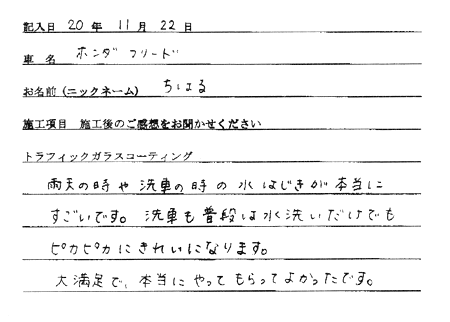 記入日 20 年 11 月 22 日
車 名 ホンダ フリード
お名前(ニックネーム) ちはる
施工項目 施工後のご感想をお聞かせください
トラフィックガラスコーティング
雨天の時や洗車の時の水はじきが本当に
すごいです。洗車も普段は水洗いだけでも
ピカピカにきれいになります。
大満足で、本当にやってもらってよかったです。